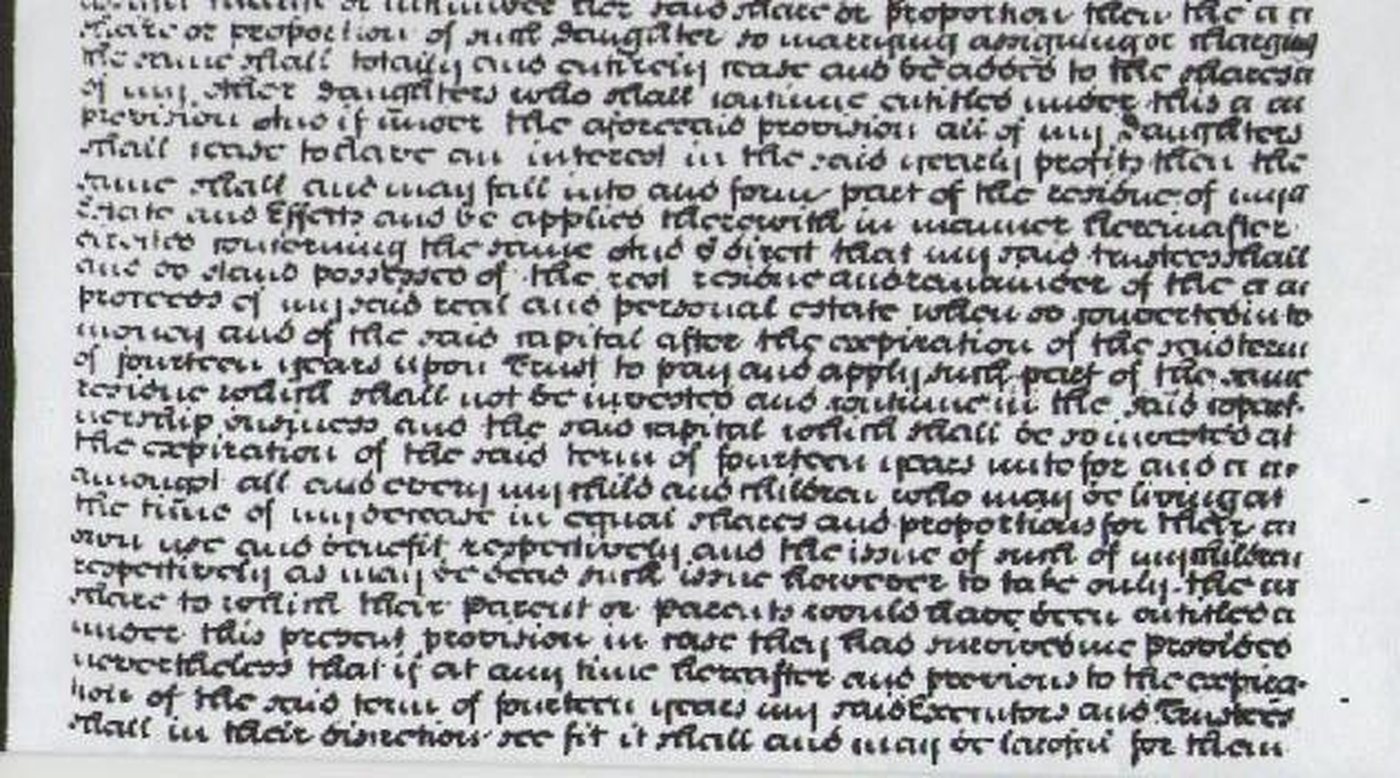 or incumber her said share or proportion then the a a
share or proportion of such daughter so marrying assigning or charging
the same shall totally and entirely cease and be added to the shares a
of my other daughters who shall continue entitled under this a a
provision And if under the aforesaid provision all of my Daughters
shall cease to have an interest in the said yearly profits then the
same shall and may fall into and form part of the residue of my a
Estate and Effects and be applied therewith in manner hereinafter
concerning the same And I direct that my said trustees shall
and do stand possessed of the rest residue and remainder of the a a
proceeds of my said real and personal estate when so converted into
money and of the said capital after the expiration of the said term
of fourteen years upon Trust to pay and apply such part of the same
residue which shall not be invested and continue in the said copart-
nership business and the said capital which shall be so invested at
the expiration of the said term of fourteen years unto for and a a
amongst all and every my child and children who may be living at
the time of my decease in equal shares and proportions for their a
own use and benefit respectively and the issue of such of my children
respectively as may be dead such issue however to take only the a
share to which their parent or parents would have been entitled a
under this present provision in case they had survived me provided
nevertheless that if at any time hereafter and previous to the expira-
tion of the said term of fourteen years my said Executors and Trustees
shall in their discretion see fit it shall and may be lawful for them